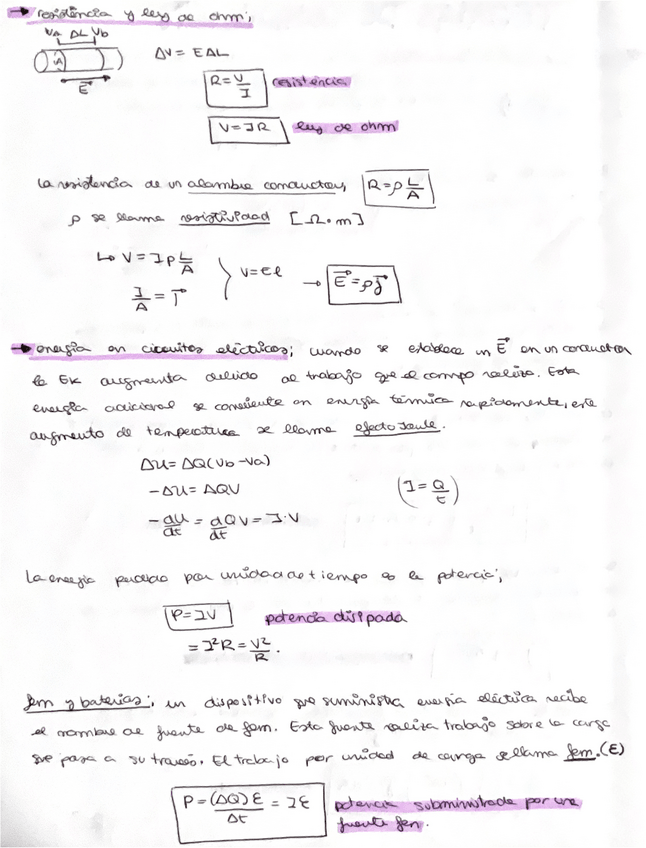 → resistència y ley de ohm;
Va ΔL Vb
A
E
ΔV = E ΔL
R = V/I resistència
V = IR ley de ohm
La resistencia de un alambre conductor, R = ρ L/A
ρ se llama resistividad [Ω·m]
↳ V = I ρ L/A
I/A = J
V = El → E = ρJ
→ energía en circuitos eléctricos; cuando se establece un E en un conductor
la Ek augmenta debido al trabajo que el campo realiza. Esta
energía adicional se convierte en energía térmica rapidamente, este
augmento de temperatura se llama efecto Joule.
ΔU = ΔQ(Vb - Va)
-ΔU = ΔQV
(I = Q/t)
-dU/dt = dQ/dt V = I·V
La energía perdida por unidad de tiempo es la potencia;
P = IV potencia disipada
= I²R = V²/R.
fem y baterías; un dispositivo que suministra energía eléctrica recibe
el nombre de fuente de fem. Esta fuente realiza trabajo sobre la carga
que pasa a su través. El trabajo por unidad de carga se llama fem. (Ɛ)
P = (ΔQ)Ɛ/Δt = IƐ potencia subministrada por una
fuente fem.